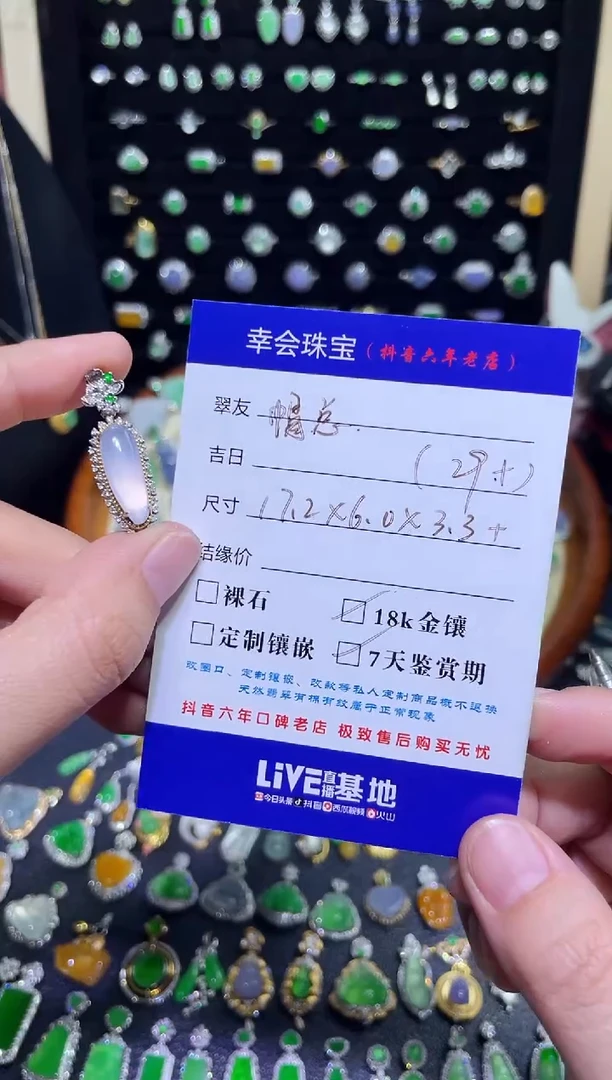 幸会珠宝（抖音六年老店）
翠友 帽总.
吉日 (29+)
尺寸 17.2×6.0×3.3+
结缘价
裸石 18k金镶
定制镶嵌 7天鉴赏期
改圈口、定制镶嵌、改款等私人定制商品概不退换
天然翡翠有棉有纹属于正常现象
抖音六年口碑老店 极致售后购买无忧
LiVE直播基地
今日头条 抖音 西瓜视频 火山